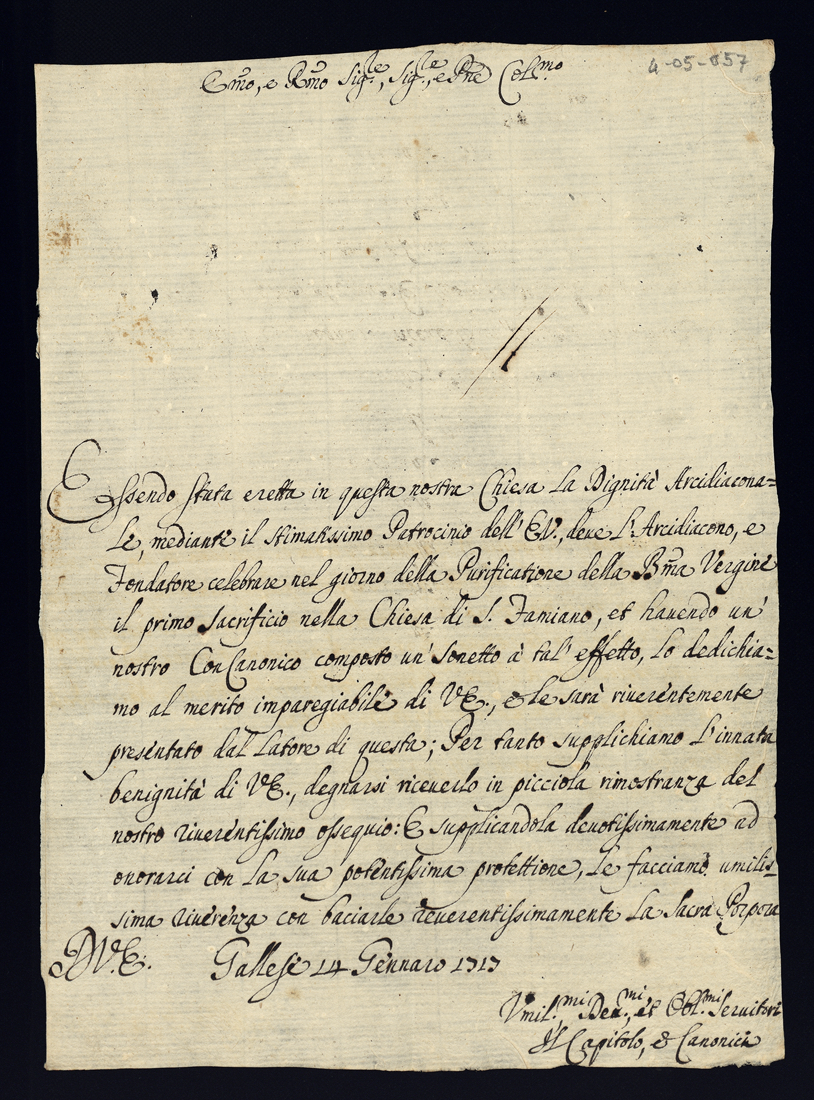 4-05-057
Emo, e Rmo Sigre, Sigre, e Pne Colmo
Essendo stata eretta in questa nostra Chiesa la Dignità Arcidiacona=
le, mediante il stimatissimo Patrocinio dell' EV., deve l'Arcidiacono, e
Fondatore celebrare nel giorno della Purificatione della Bma Vergine
il primo Sacrificio nella Chiesa di S. Famiano, et havendo un'
nostro ConCanonico composto un' Sonetto à tal' effetto, lo dedichia=
mo al merito imparegiabile di VE., e le sarà riverentemente
presentato dal latore di questa; Per tanto supplichiamo l'innata
benignità di VE., degnarsi riceverlo in picciola rimostranza del
nostro riverentissimo ossequio: E supplicandola devotissimamente ad
onorarci con la sua potentissima protettione, le facciamo umilis=
sima riverenza con baciarle reverentissimamente la Sacra Porpora
DV.E. Gallese 14 Gennaro 1717
Umil.mi Dev.mi, et Obl.mi Servitori
Il Capitolo, e Canonici